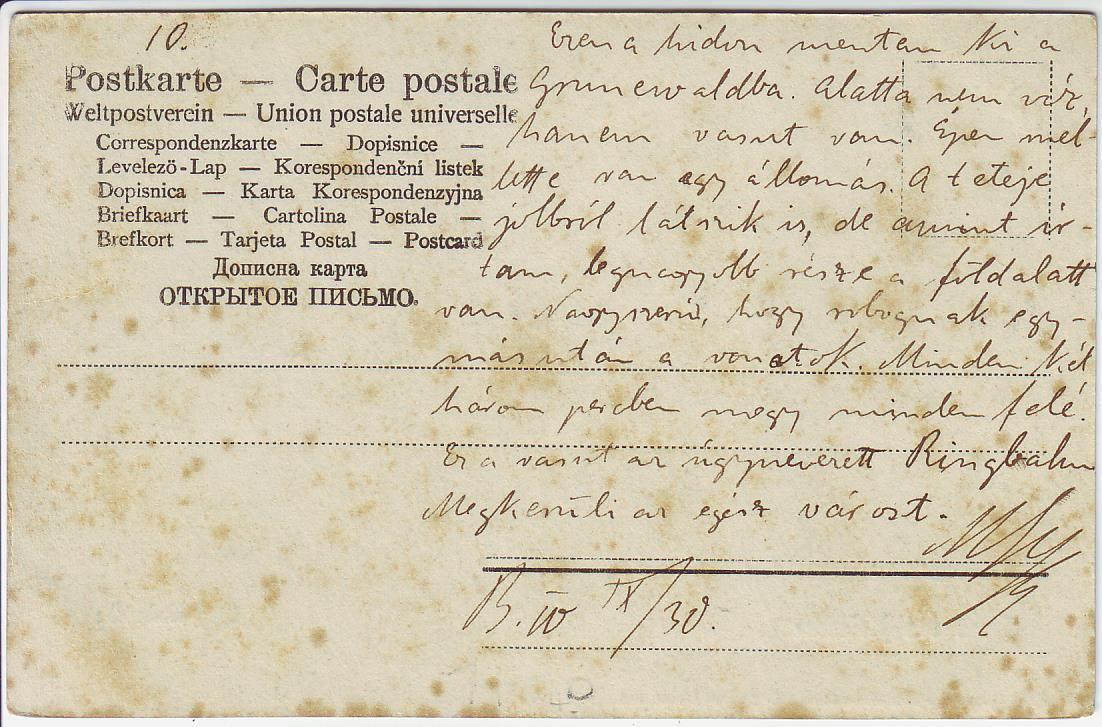 10.
Postkarte — Carte postale
Weltpostverein — Union postale universelle
Correspondenzkarte — Dopisnice —
Levelező-Lap — Korespondenční listek
Dopisnica — Karta Korespondenzyjna
Briefkaart — Cartolina Postale —
Brefkort — Tarjeta Postal — Postcard
Дописна карта
ОТКРЫТОЕ ПИСЬМО.
Ezen a hidon mentem ki a
Grunewaldba. Alatta nem víz,
hanem vasut van. Épen mel-
lette van egy állomás. A teteje
jobbról látszik is, de amint ir-
tam, legnagyobb része a föld alatt
van. Nagyszerü, hogy robognak egy-
másután a vonatok. Minden két
három percben megy minden felé.
Ez a vasut az úgynevezett Ringbahn
Megkerüli az egész várost.
B. IV IX/30.